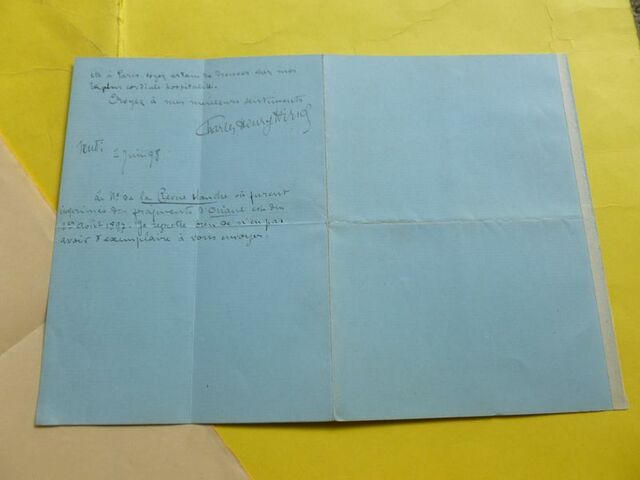 été à Paris, soyez certain de trouver chez moi
la plus cordiale hospitalité.
Croyez à mes meilleurs sentiments
Charles-Henry Hirsch
Jeudi
2 Juin 98.
Le No de la Revue blanche où furent
imprimés des fragments d'Oriane est du
1er Août 1897. Je regrette bien de n'en pas
avoir d'exemplaire à vous envoyer.